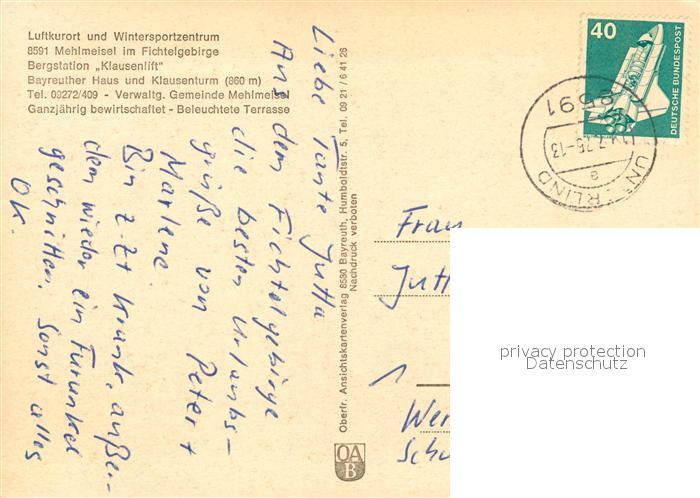 Luftkurort und Wintersportzentrum
8591 Mehlmeisel im Fichtelgebirge
Bergstation „Klausenlift"
Bayreuther Haus und Klausenturm (860 m)
Tel. 09272/409 - Verwaltg. Gemeinde Mehlmeisel
Ganzjährig bewirtschaftet - Beleuchtete Terrasse
Liebe Tante Jutta
Aus dem Fichtelgebirge
die besten Urlaubs-
grüße von Peter +
Marlene
Bin z. Zt. krank, außer-
dem wieder ein Furunkel
geschnitten, sonst alles
OK.
Oberfr. Ansichtskartenverlag 8580 Bayreuth, Humboldtstr. 5, Tel. 09 21 / 6 41 26
Nachdruck verboten
OA
B
40
DEUTSCHE BUNDESPOST
8591
75-13
a
UN ERLIND
Frau
Jutt
Wer
Schu
privacy protection
Datenschutz